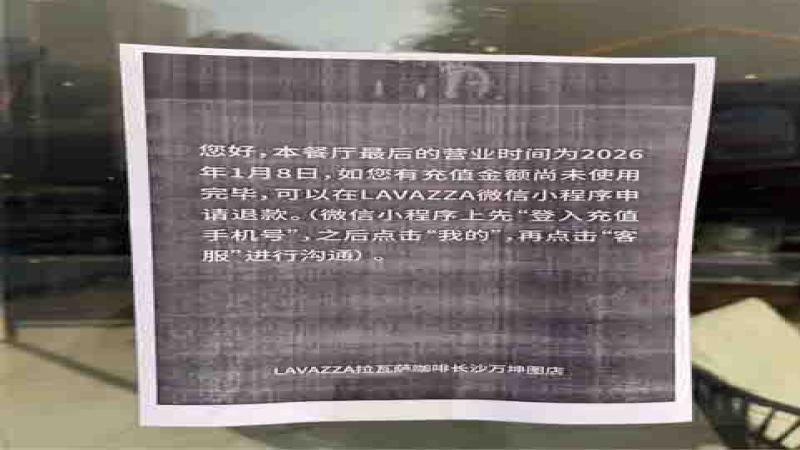 您好，本餐厅最后的营业时间为2026
年1月8日，如您有充值金额尚未使用
完毕，可以在LAVAZZA微信小程序申
请退款。（微信小程序上先“登入充值
手机号”，之后点击“我的”，再点击“客
服”进行沟通）。
LAVAZZA拉瓦萨咖啡长沙万坤图店